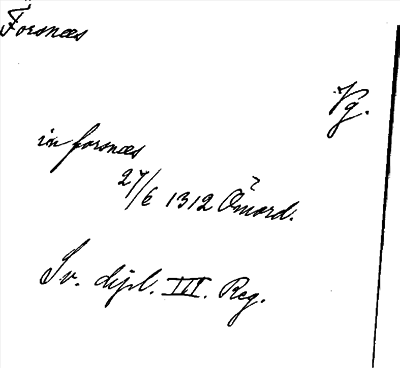 Forsnæs
Vg.
in forsnæs
27/6 1312 Ömord.
Sv. dipl. III. Reg.